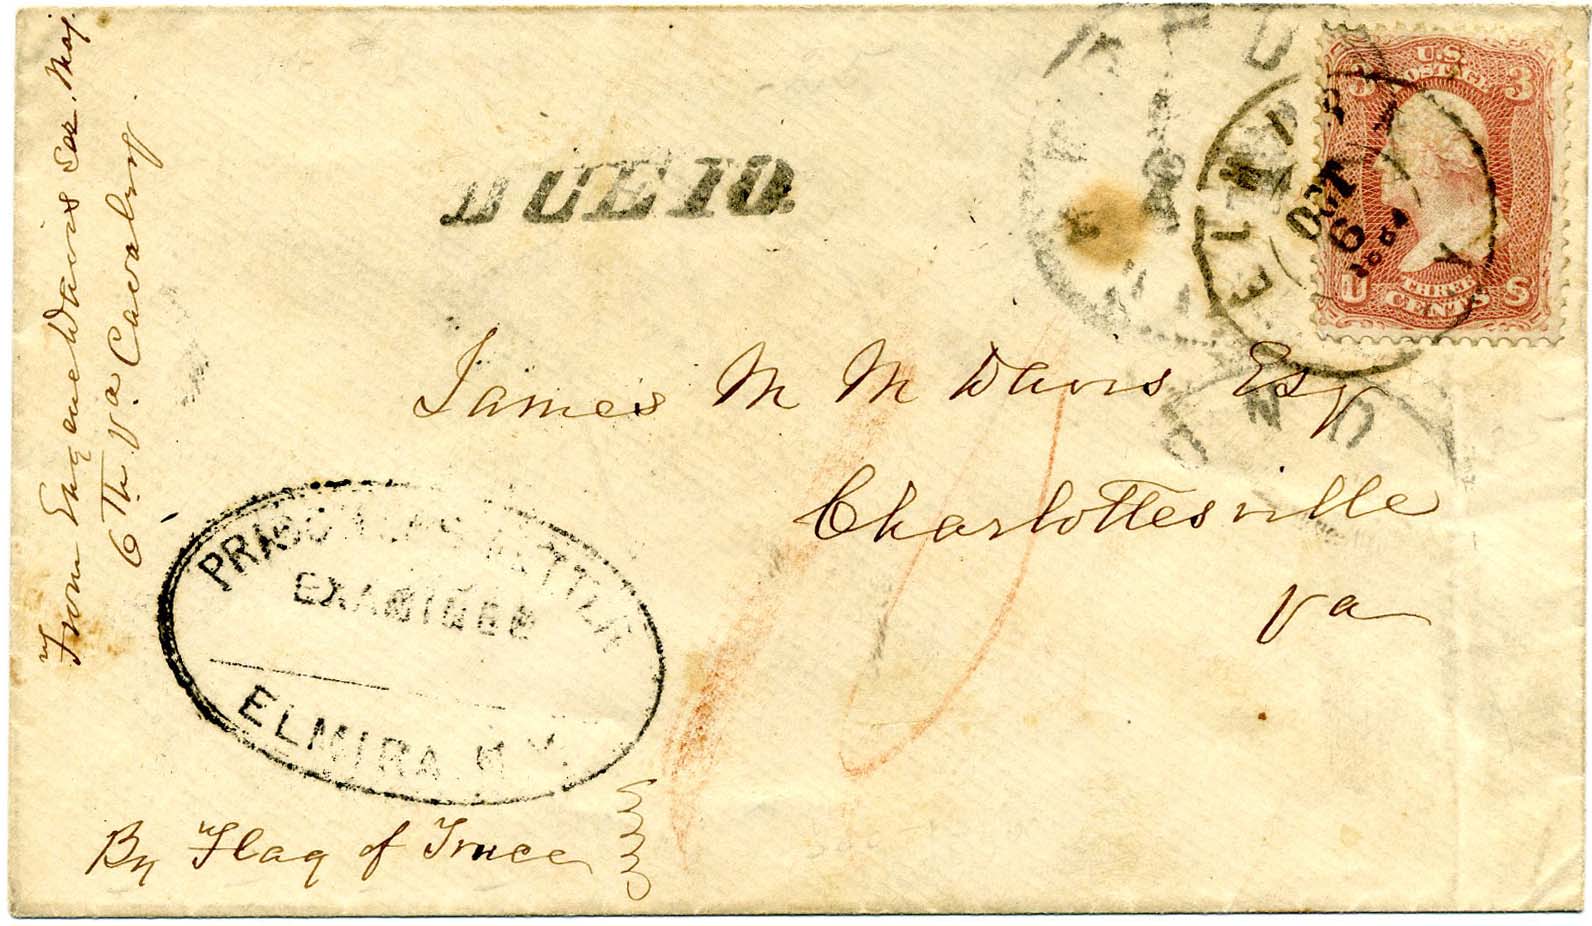 From Eugene Davis Ser. Maj.
6th Va Cavalry
DUE 10.
U.S.
POSTAGE
3 3
ELMIRA
N Y
OCT
6
1864
THREE
CENTS
U S
James M M Davis Esq
Charlottesville
Va
10
PRISONER'S LETTER
EXAMINED
ELMIRA, N.Y.
By Flag of Truce